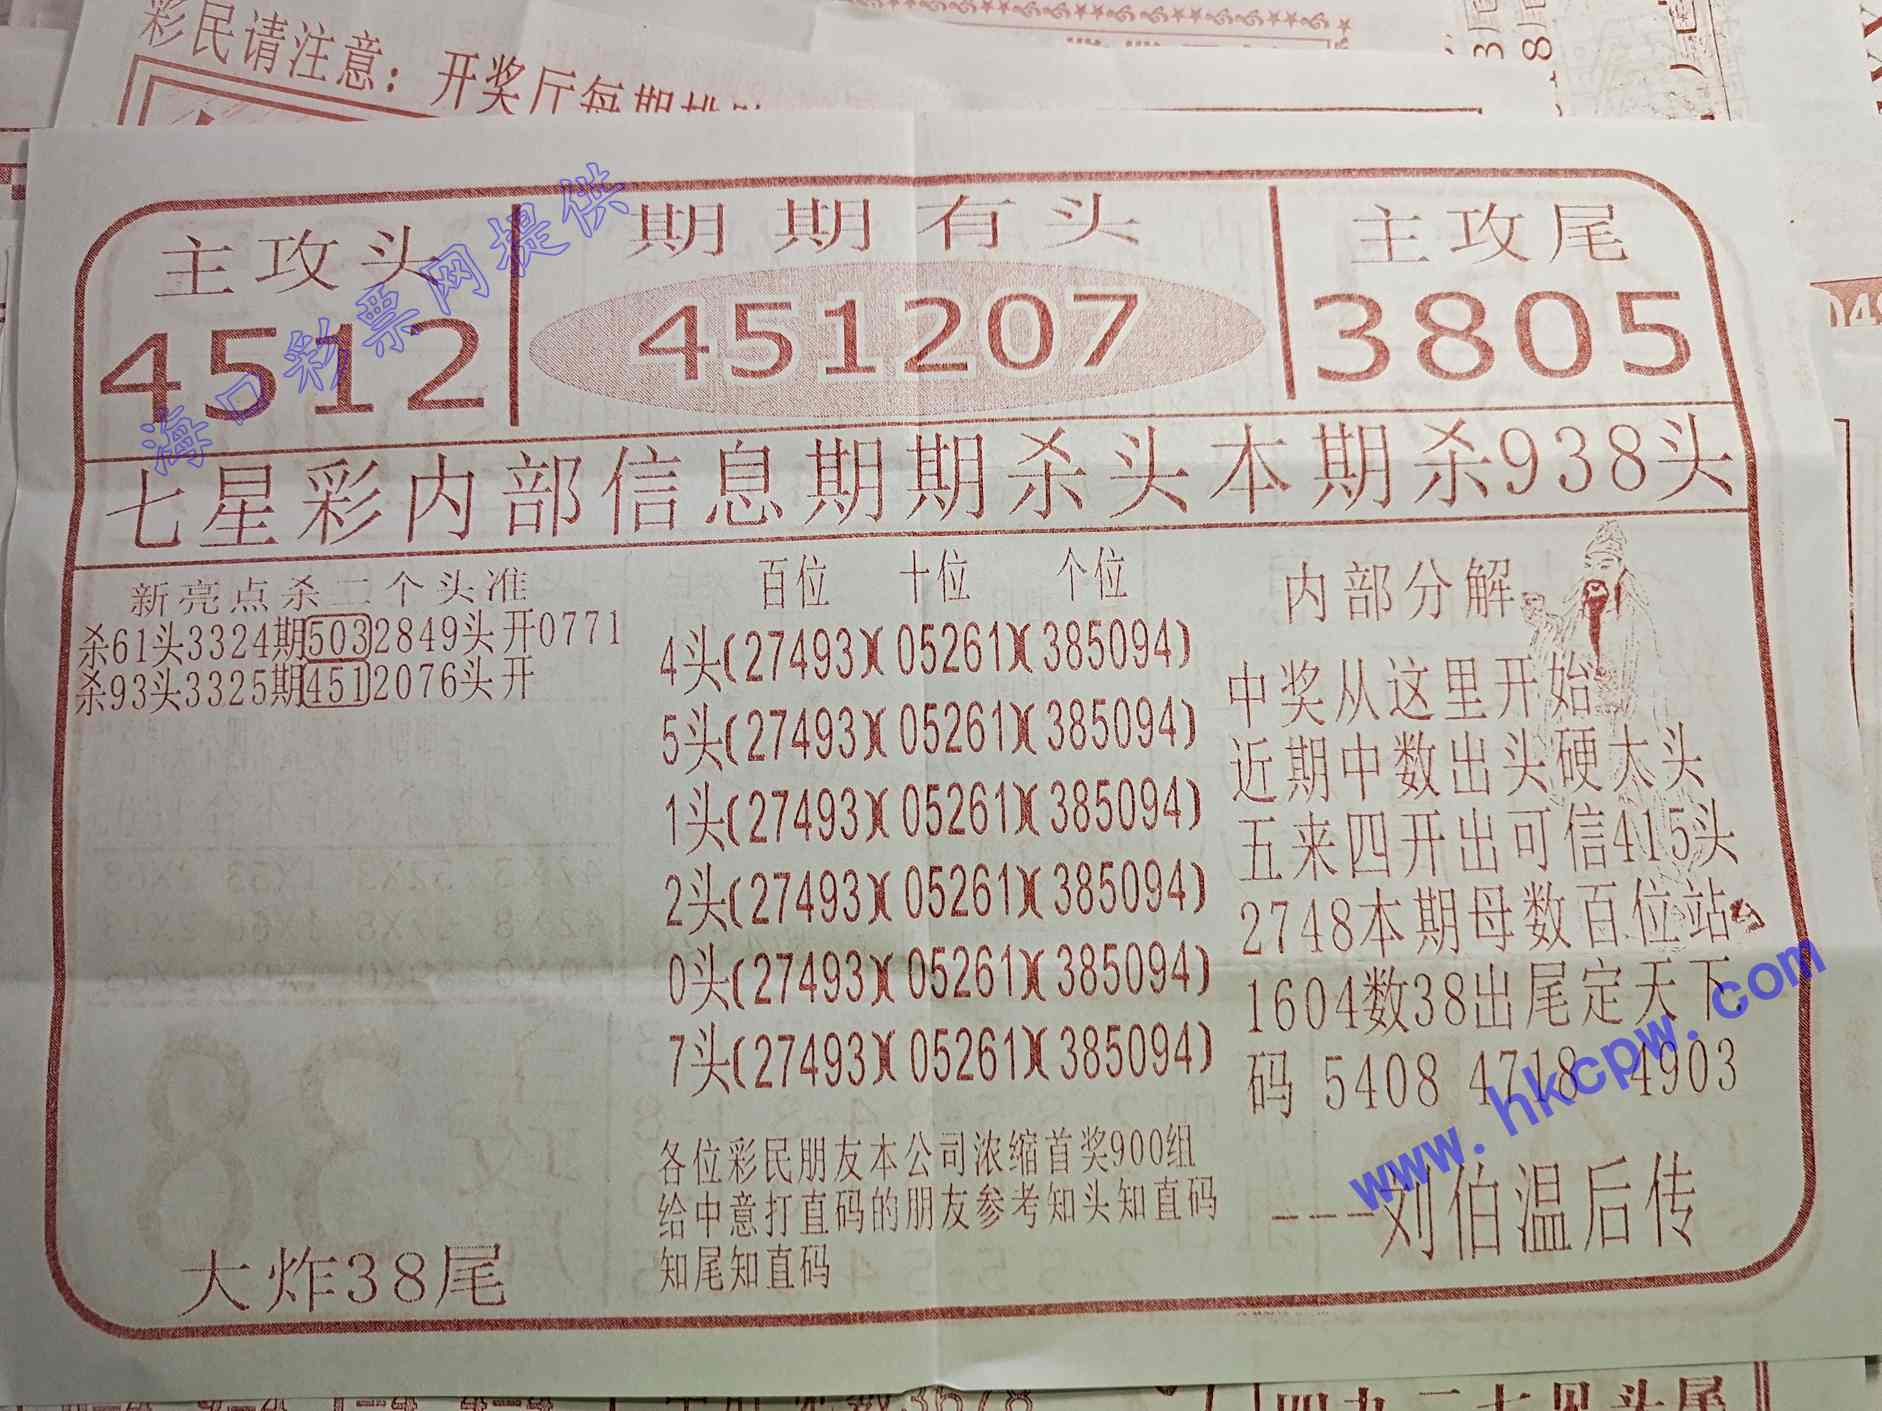 彩民请注意：开奖厅每期
主攻头
4512
期期有头
451207
主攻尾
3805
七星彩内部信息期期杀头本期杀938头
新亮点杀二个头准
杀61头3324期5032849头开0771
杀93头3325期4512076头开
大炸38尾
百位 十位 个位
4头(27493)(05261)(385094)
5头(27493)(05261)(385094)
1头(27493)(05261)(385094)
2头(27493)(05261)(385094)
0头(27493)(05261)(385094)
7头(27493)(05261)(385094)
各位彩民朋友本公司浓缩首奖900组
给中意打直码的朋友参考知头知直码
知尾知直码
内部分解
中奖从这里开始
近期中数出头硬太头
五来四开出可信415头
2748本期母数百位站
1604数38出尾定天下
码 5408 4718 4903
---刘伯温后传
海口彩票网提供
www.hkcpw.com